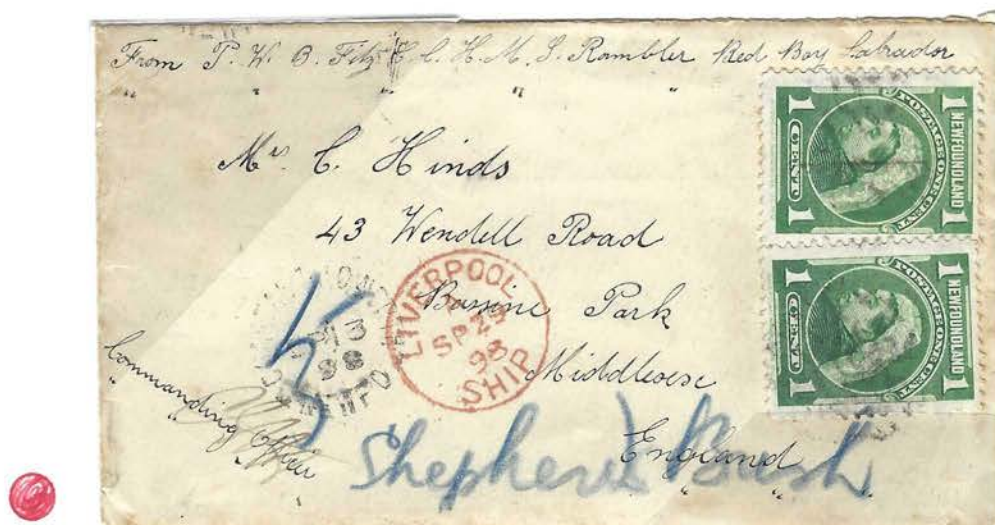 From P. W. B. Fitz H.M.S. Rambler Red Bay Labrador
" " " " "
Mrs C. Hinds
43 Wendell Road
Park
Middlesex
England
Commanding Officer
" "
Shepherds Bush
LIVERPOOL
SP 29
98
SHIP
NEWFOUNDLAND
POSTAGE ONE CENT
1 CENT 1
NEWFOUNDLAND
POSTAGE ONE CENT
1 CENT 1